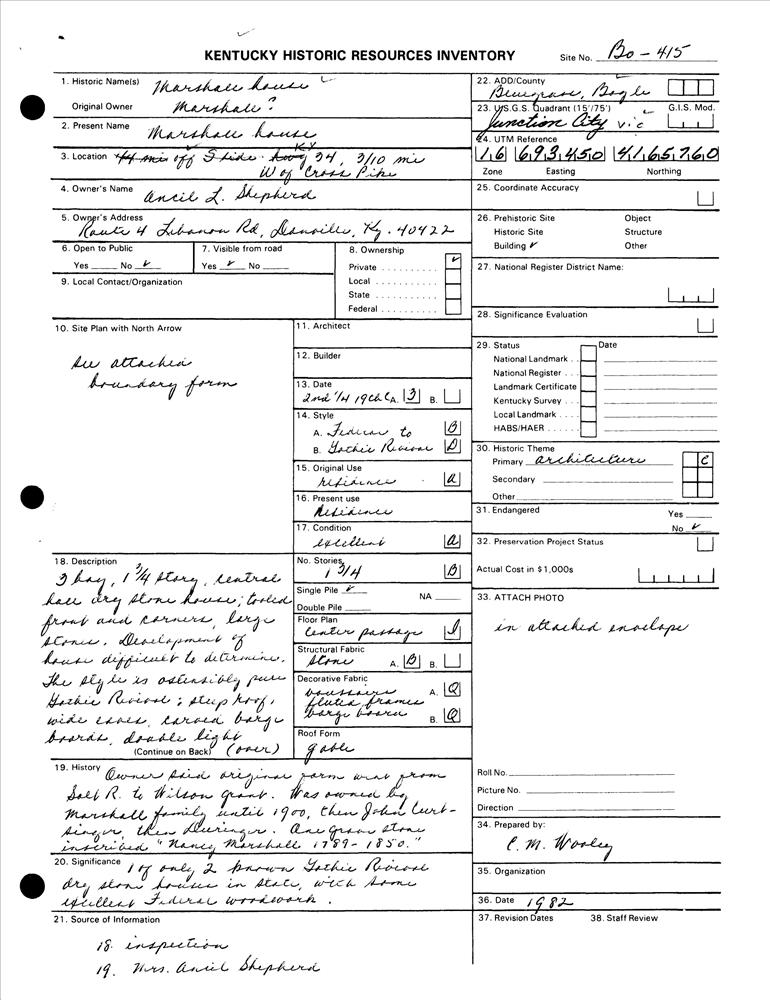 KENTUCKY HISTORIC RESOURCES INVENTORY
Site No. Bo-415
1. Historic Name(s) Marshall house
Original Owner Marshall?
2. Present Name Marshall house
3. Location off S side KY 34, 3/10 mi
W of Cross Pike
4. Owner's Name Ancil L. Shepherd
5. Owner's Address Route 4 Lebanon Rd, Danville, Ky. 40422
6. Open to Public
Yes No ✓
7. Visible from road
Yes ✓ No
8. Ownership
Private ✓
Local
State
Federal
9. Local Contact/Organization
10. Site Plan with North Arrow
see attached
boundary form
11. Architect
12. Builder
13. Date
2nd 1/4 19th C A. 3 B.
14. Style
A. Federal to B
B. Gothic Revival D
15. Original Use
residence A
16. Present use
residence
17. Condition
excellent A
18. Description
3 bay, 1 3/4 story, central
hall dry stone house; tooled
front and corners, large
stones. Development of
house difficult to determine.
The style is ostensibly pure
Gothic Revival: steep roof,
wide eaves, carved barge
boards, double light
(Continue on Back) (over)
No. Stories
1 3/4 B
Single Pile ✓ NA
Double Pile
Floor Plan
center passage I
Structural Fabric
stone A. B B.
Decorative Fabric
voussoirs A. Q
fluted frames
barge board B. Q
Roof Form
gable
19. History Owner said original farm went from
Salt R. to Wilson grant. Was owned by
Marshall family until 1900, then John Curt-
singer, then Deringer. One grave stone
inscribed "Nancy Marshall 1789-1850."
20. Significance 1 of only 2 known Gothic Revival
dry stone houses in state, with some
excellent Federal woodwork.
21. Source of Information
18. inspection
19. Mrs. Ancil Shepherd
22. ADD/County
Bluegrass, Boyle
23. U.S.G.S. Quadrant (15'/75') G.I.S. Mod.
Junction City
24. UTM Reference
16 693450 4165760
Zone Easting Northing
25. Coordinate Accuracy
26. Prehistoric Site Object
Historic Site Structure
Building ✓ Other
27. National Register District Name:
28. Significance Evaluation
29. Status Date
National Landmark
National Register
Landmark Certificate
Kentucky Survey
Local Landmark
HABS/HAER
30. Historic Theme
Primary architecture C
Secondary
Other
31. Endangered Yes
No ✓
32. Preservation Project Status
Actual Cost in $1,000s
33. ATTACH PHOTO
in attached envelope
Roll No.
Picture No.
Direction
34. Prepared by:
C. M. Wooley
35. Organization
36. Date 1982
37. Revision Dates 38. Staff Review